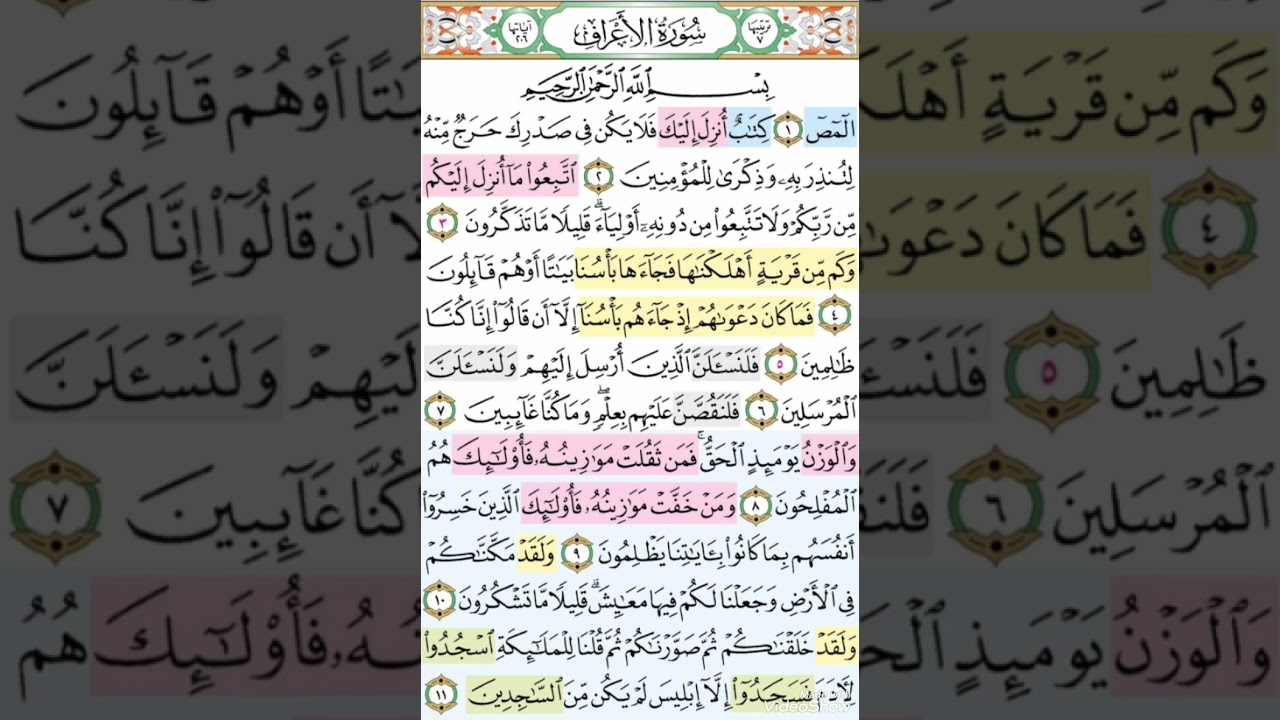 ترتيبها ٧ سُورَةُ الأَعۡرَافِ آياتها ٢٠٦
بِسۡمِ ٱللَّهِ ٱلرَّحۡمَٰنِ ٱلرَّحِيمِ
الٓمٓصٓ ١ كِتَٰبٌ أُنزِلَ إِلَيۡكَ فَلَا يَكُن فِي صَدۡرِكَ حَرَجٞ مِّنۡهُ
لِتُنذِرَ بِهِۦ وَذِكۡرَىٰ لِلۡمُؤۡمِنِينَ ٢ ٱتَّبِعُواْ مَآ أُنزِلَ إِلَيۡكُم
مِّن رَّبِّكُمۡ وَلَا تَتَّبِعُواْ مِن دُونِهِۦٓ أَوۡلِيَآءَۗ قَلِيلٗا مَّا تَذَكَّرُونَ ٣
وَكَم مِّن قَرۡيَةٍ أَهۡلَكۡنَٰهَا فَجَآءَهَا بَأۡسُنَا بَيَٰتًا أَوۡ هُمۡ قَآئِلُونَ
٤ فَمَا كَانَ دَعۡوَىٰهُمۡ إِذۡ جَآءَهُم بَأۡسُنَآ إِلَّآ أَن قَالُوٓاْ إِنَّا كُنَّا
ظَٰلِمِينَ ٥ فَلَنَسۡـَٔلَنَّ ٱلَّذِينَ أُرۡسِلَ إِلَيۡهِمۡ وَلَنَسۡـَٔلَنَّ
ٱلۡمُرۡسَلِينَ ٦ فَلَنَقُصَّنَّ عَلَيۡهِم بِعِلۡمٖۖ وَمَا كُنَّا غَآئِبِينَ ٧
وَٱلۡوَزۡنُ يَوۡمَئِذٍ ٱلۡحَقُّۚ فَمَن ثَقُلَتۡ مَوَٰزِينُهُۥ فَأُوْلَٰٓئِكَ هُمُ
ٱلۡمُفۡلِحُونَ ٨ وَمَنۡ خَفَّتۡ مَوَٰزِينُهُۥ فَأُوْلَٰٓئِكَ ٱلَّذِينَ خَسِرُوٓاْ
أَنفُسَهُم بِمَا كَانُواْ بِـَٔايَٰتِنَا يَظۡلِمُونَ ٩ وَلَقَدۡ مَكَّنَّٰكُمۡ
فِي ٱلۡأَرۡضِ وَجَعَلۡنَا لَكُمۡ فِيهَا مَعَٰيِشَۗ قَلِيلٗا مَّا تَشۡكُرُونَ ١٠
وَلَقَدۡ خَلَقۡنَٰكُمۡ ثُمَّ صَوَّرۡنَٰكُمۡ ثُمَّ قُلۡنَا لِلۡمَلَٰٓئِكَةِ ٱسۡجُدُواْ
لِأٓدَمَ فَسَجَدُوٓاْ إِلَّآ إِبۡلِيسَ لَمۡ يَكُن مِّنَ ٱلسَّٰجِدِينَ ١١
VideoShow